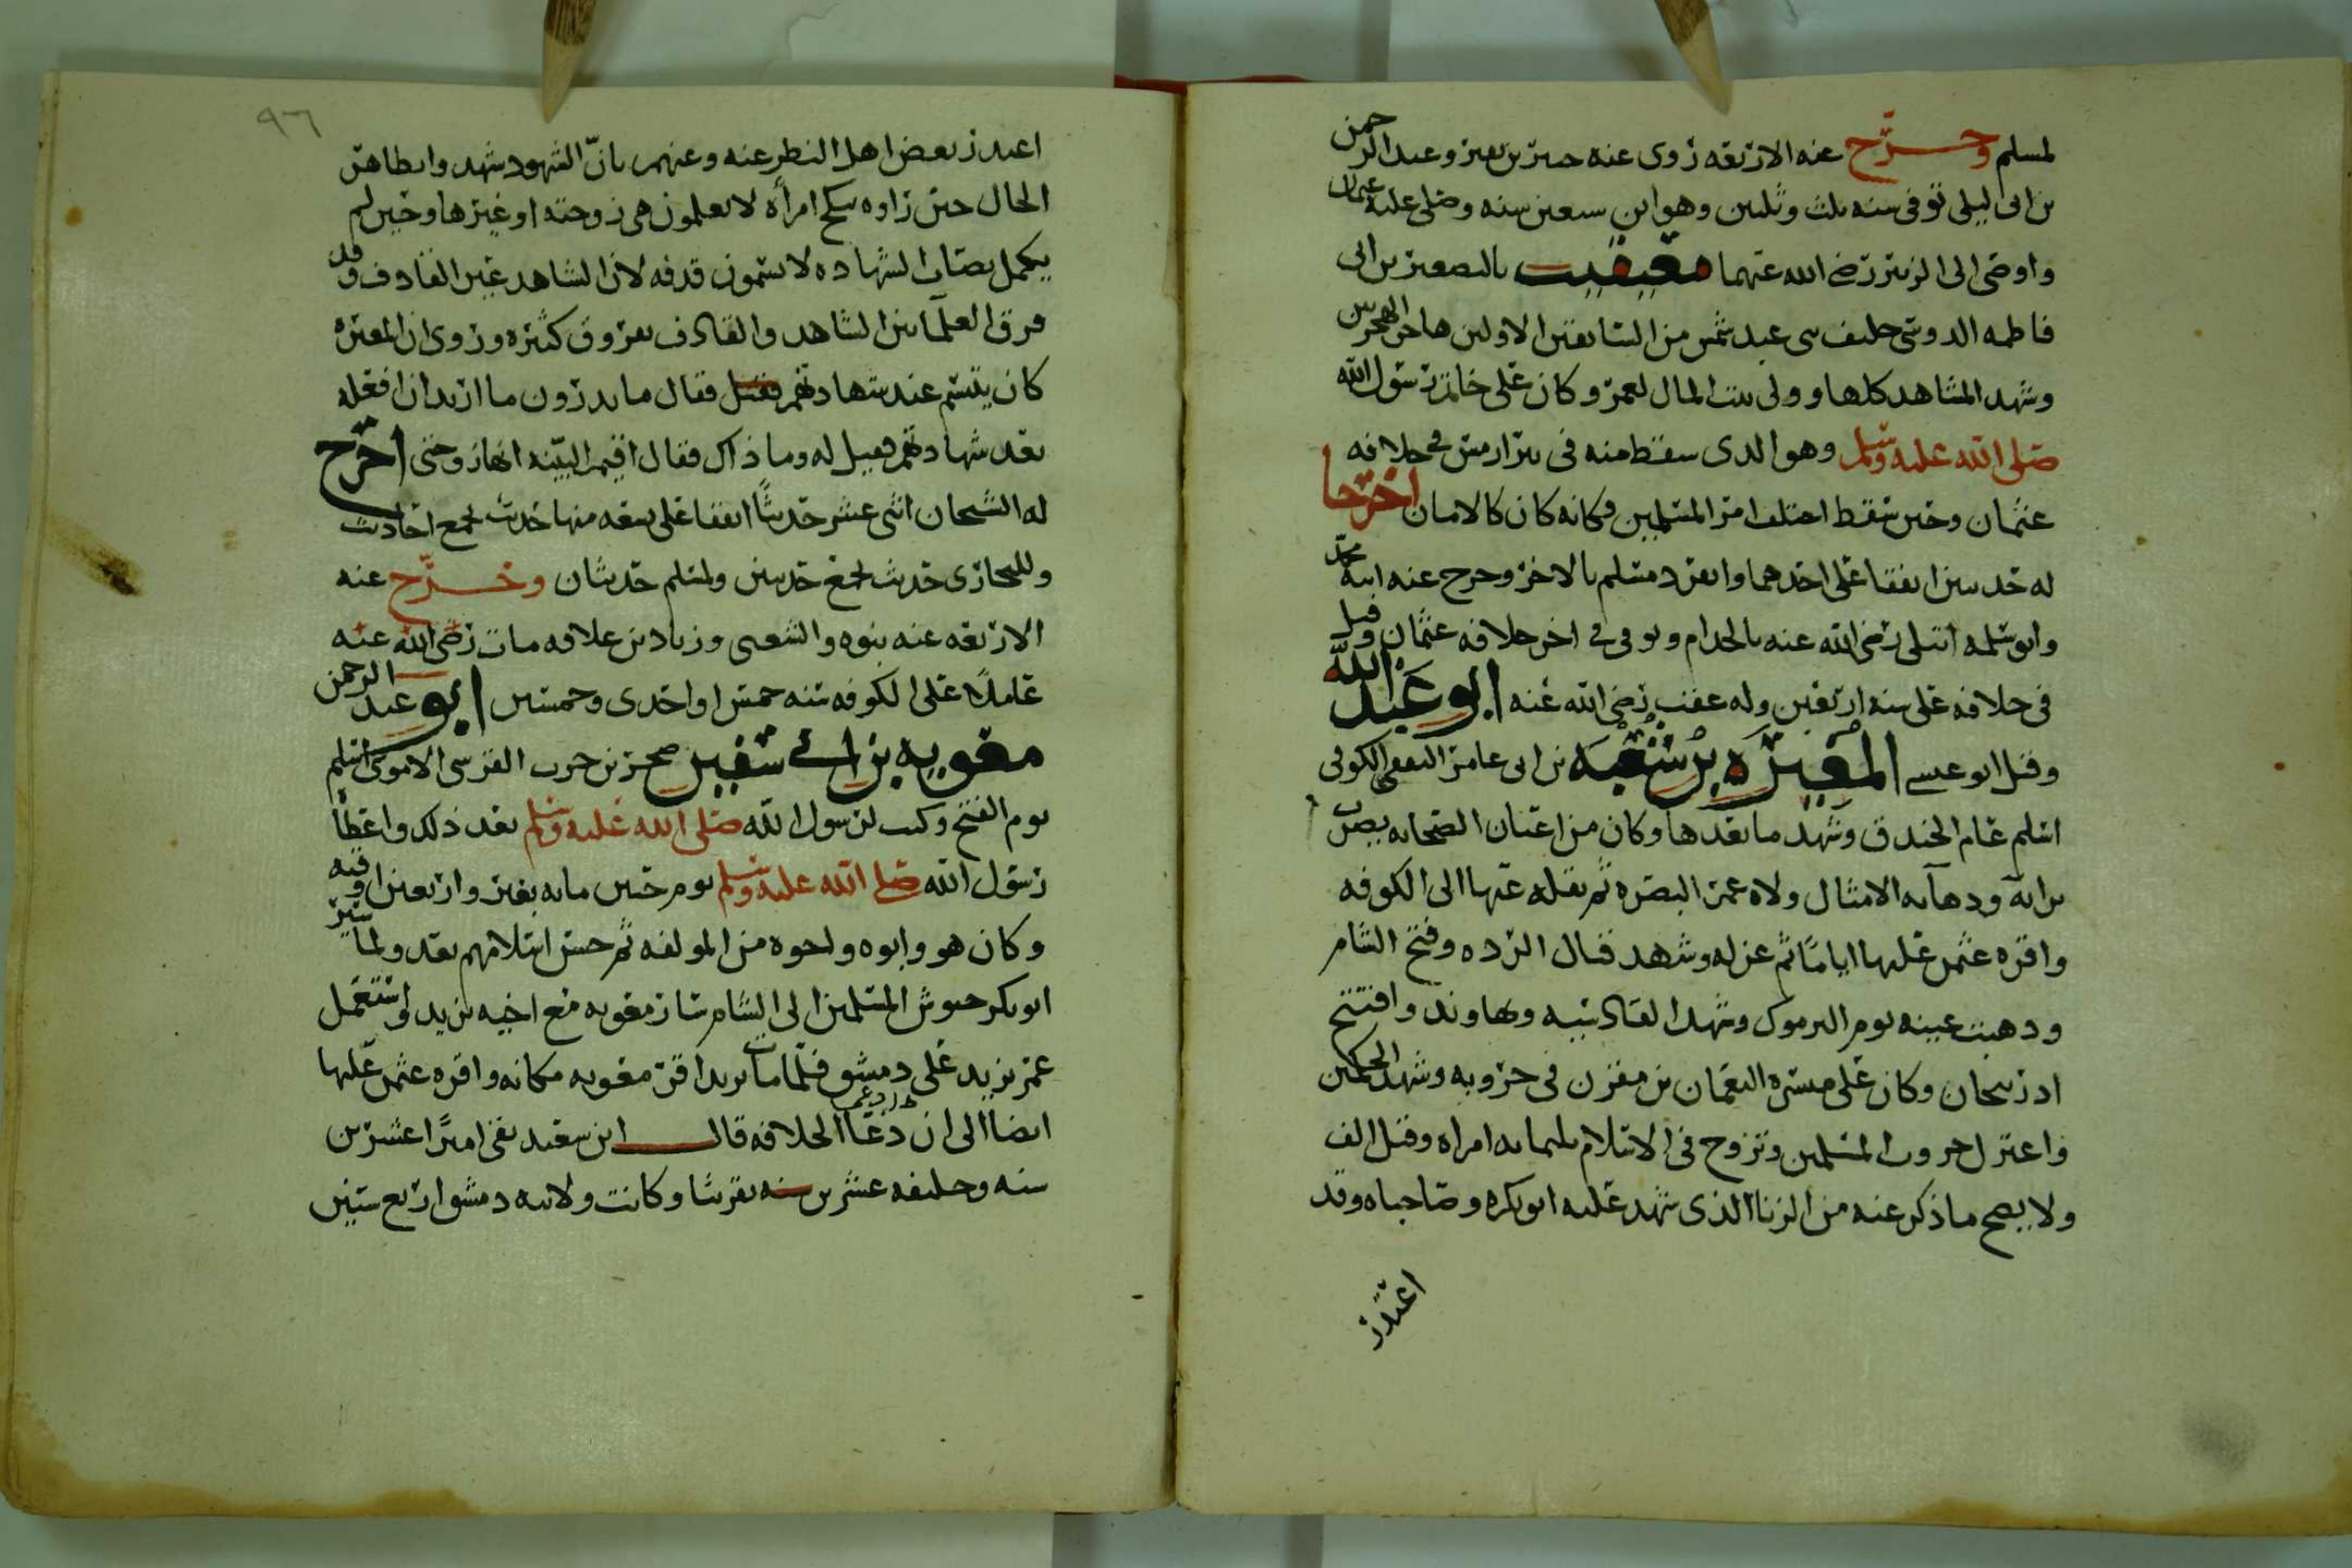 لمسلم وخرّج عنه الاربعه روى عنه جبير بن نفير وعبد الرحمن
بن ابى ليلى توفى سنه ثلث وثلثين وهو ابن سبعين سنه وصلى عليه عثمان
واوصى الى الزبير رضى الله عنهما معيقيب بالتصغير بن ابى
فاطمه الدوسى حليف بنى عبد شمس من السابقين الاولين هاجر الهجرتين
وشهد المشاهد كلها وولى بيت المال لعمر وكان على خاتم رسول الله
صلى الله عليه وسلم وهو الذى سقط منه فى بئر اريس فى خلافه
عثمان وحين سقط اختلف امر المسلمين فكانه كان كالامان اخرجا
له حديثين اتفقا على احدهما وانفرد مسلم بالاخر وخرج عنه ابنه محمد
وابو سلمه ابتلى رضى الله عنه بالجذام وتوفى فى اخر خلافه عثمان وقيل
فى خلافه على سنه اربعين وله عقب رضى الله عنه ابو عبد الله
وقيل ابو عيسى المغيره بن شعبه بن ابى عامر الثقفى الكوفى
اسلم عام الخندق وشهد ما بعدها وكان من اعيان الصحابه يضرب
برايه ودهآيه الامثال ولاه عمر البصره ثم نقله عنها الى الكوفه
واقره عثمن عليها اياما ثم عزله وشهد قتال الرده وفتح الشام
وذهبت عينه يوم اليرموك وشهد القادسيه ونهاوند وافتتح
اذربيجان وكان على ميسره النعمان بن مقرن فى حروبه وشهد الحكمين
واعتزل حروب المسلمين وتزوج فى الاسلام ثلثمايه امراه وقيل الف
ولا يصح ما ذكر عنه من الزنا الذى شهد عليه ابو بكره وصاحباه وقد
اعتذر
٩٦
اعتذر بعض اهل النظر عنه وعنهم بانّ الشهود شهدوا بظاهر
الحال حين راوه ينكح امرأه لا يعلمون هى زوجته او غيرها وحين لم
يكمل نصاب الشهاده لا يسمون قذفه لان الشاهد غير القاذف وقد
فرق العلمآ بين الشاهد والقاذف بفروق كثيره وروى ان المغيره
كان يتبسم عند شهادتهم فقيل فقال ما تدرون ما اريد ان افعله
بعد شهادتهم فقيل له وما ذاك فقال اقيم البيّنه انها زوجتى اخرج
له الشيخان اثنى عشر حديثًا اتفقا على تسعه منها حديث لجمع احاديث
وللبخارى حديث لجمع حديثين ولمسلم حديثان وخرّج عنه
الاربعه عنه بنوه والشعبى وزياد بن علاقه مات رضى الله عنه
عاملا على الكوفه سنه خمس او احدى وخمسين ابو عبد الرحمن
معويه بن ابى سفين صخر بن حرب القرشى الاموى اسلم
يوم الفتح وكتب لرسول الله صلى الله عليه وسلم بعد ذلك واعطاه
رسول الله صلى الله عليه وسلم يوم حنين مايه بعير واربعين اوقيه
وكان هو وابوه واخوه من المولفه ثم حسن اسلامهم بعد ولما سير
ابو بكر جيوش المسلمين الى الشام سار معويه مع اخيه يزيد واستعمل
عمر يزيد على دمشق فلما مات يزيد اقر معويه مكانه واقره عثمن عليها
ايضا الى ان دعا الخلافه قال ابن سعيد بقى اميرًا عشرين
سنه وخليفه عشرين سنه تقريبا وكانت ولايته دمشق اربع سنين